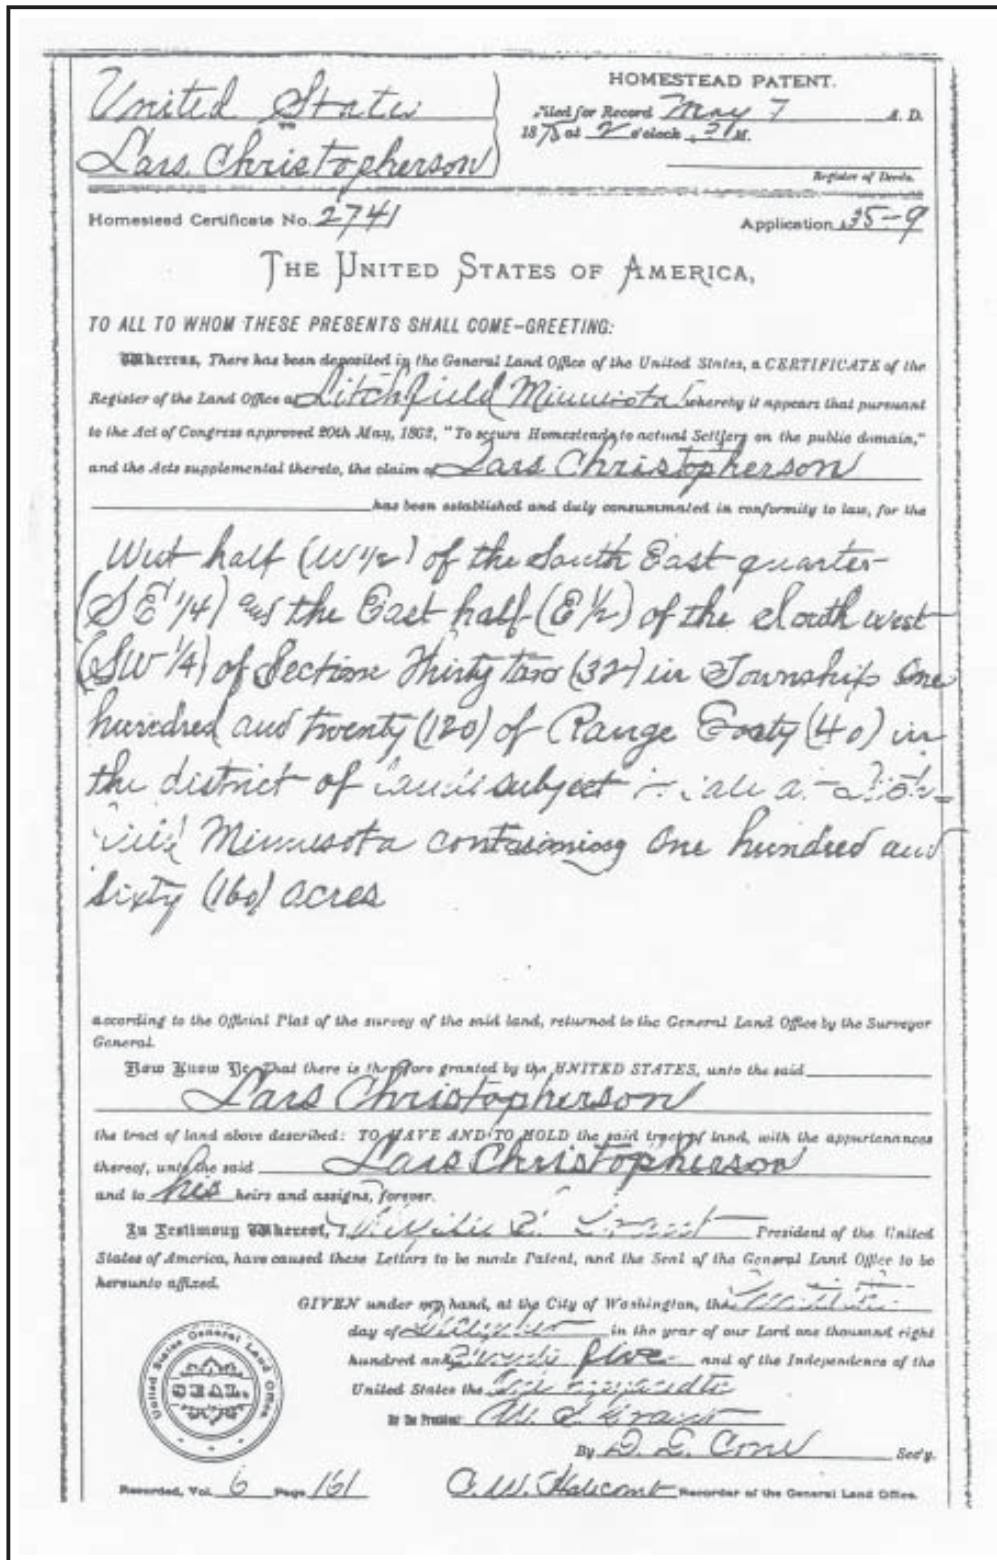 United State
TO
Lars. Christopherson
HOMESTEAD PATENT.
Filed for Record May 7 A. D.
187 at 2 o'clock M.
Register of Deeds.
Homestead Certificate No. 2741
Application 35-9
THE UNITED STATES OF AMERICA,
TO ALL TO WHOM THESE PRESENTS SHALL COME-GREETING:
Whereas, There has been deposited in the General Land Office of the United States, a CERTIFICATE of the
Register of the Land Office at Litchfield Minnesota whereby it appears that pursuant
to the Act of Congress approved 20th May, 1862, "To secure Homesteads to actual Settlers on the public domain,"
and the Acts supplemental thereto, the claim of Lars Christopherson
has been established and duly consummated in conformity to law, for the
West half (W 1/2) of the South East quarter
(SE 1/4) and the East half (E 1/2) of the South west
(SW 1/4) of Section Thirty two (32) in Township One
hundred and twenty (120) of Range Forty (40) in
the district of subject
Minnesota containing One hundred and
Sixty (160) acres
according to the Official Plat of the survey of the said land, returned to the General Land Office by the Surveyor
General.
Now Know Ye, That there is therefore granted by the UNITED STATES, unto the said
Lars Christopherson
the tract of land above described: TO HAVE AND TO HOLD the said tract of land, with the appurtenances
thereof, unto the said Lars Christopherson
and to his heirs and assigns, forever.
In Testimony Whereof, I President of the United
States of America, have caused these Letters to be made Patent, and the Seal of the General Land Office to be
hereunto affixed.
GIVEN under my hand, at the City of Washington, the
day of December in the year of our Lord one thousand eight
hundred and five and of the Independence of the
United States the
By the President: U. S. Grant
By D. D. Cone Sec'y.
United States General Land Office.
SEAL.
Recorded, Vol. 6 Page 161
Recorder of the General Land Office.